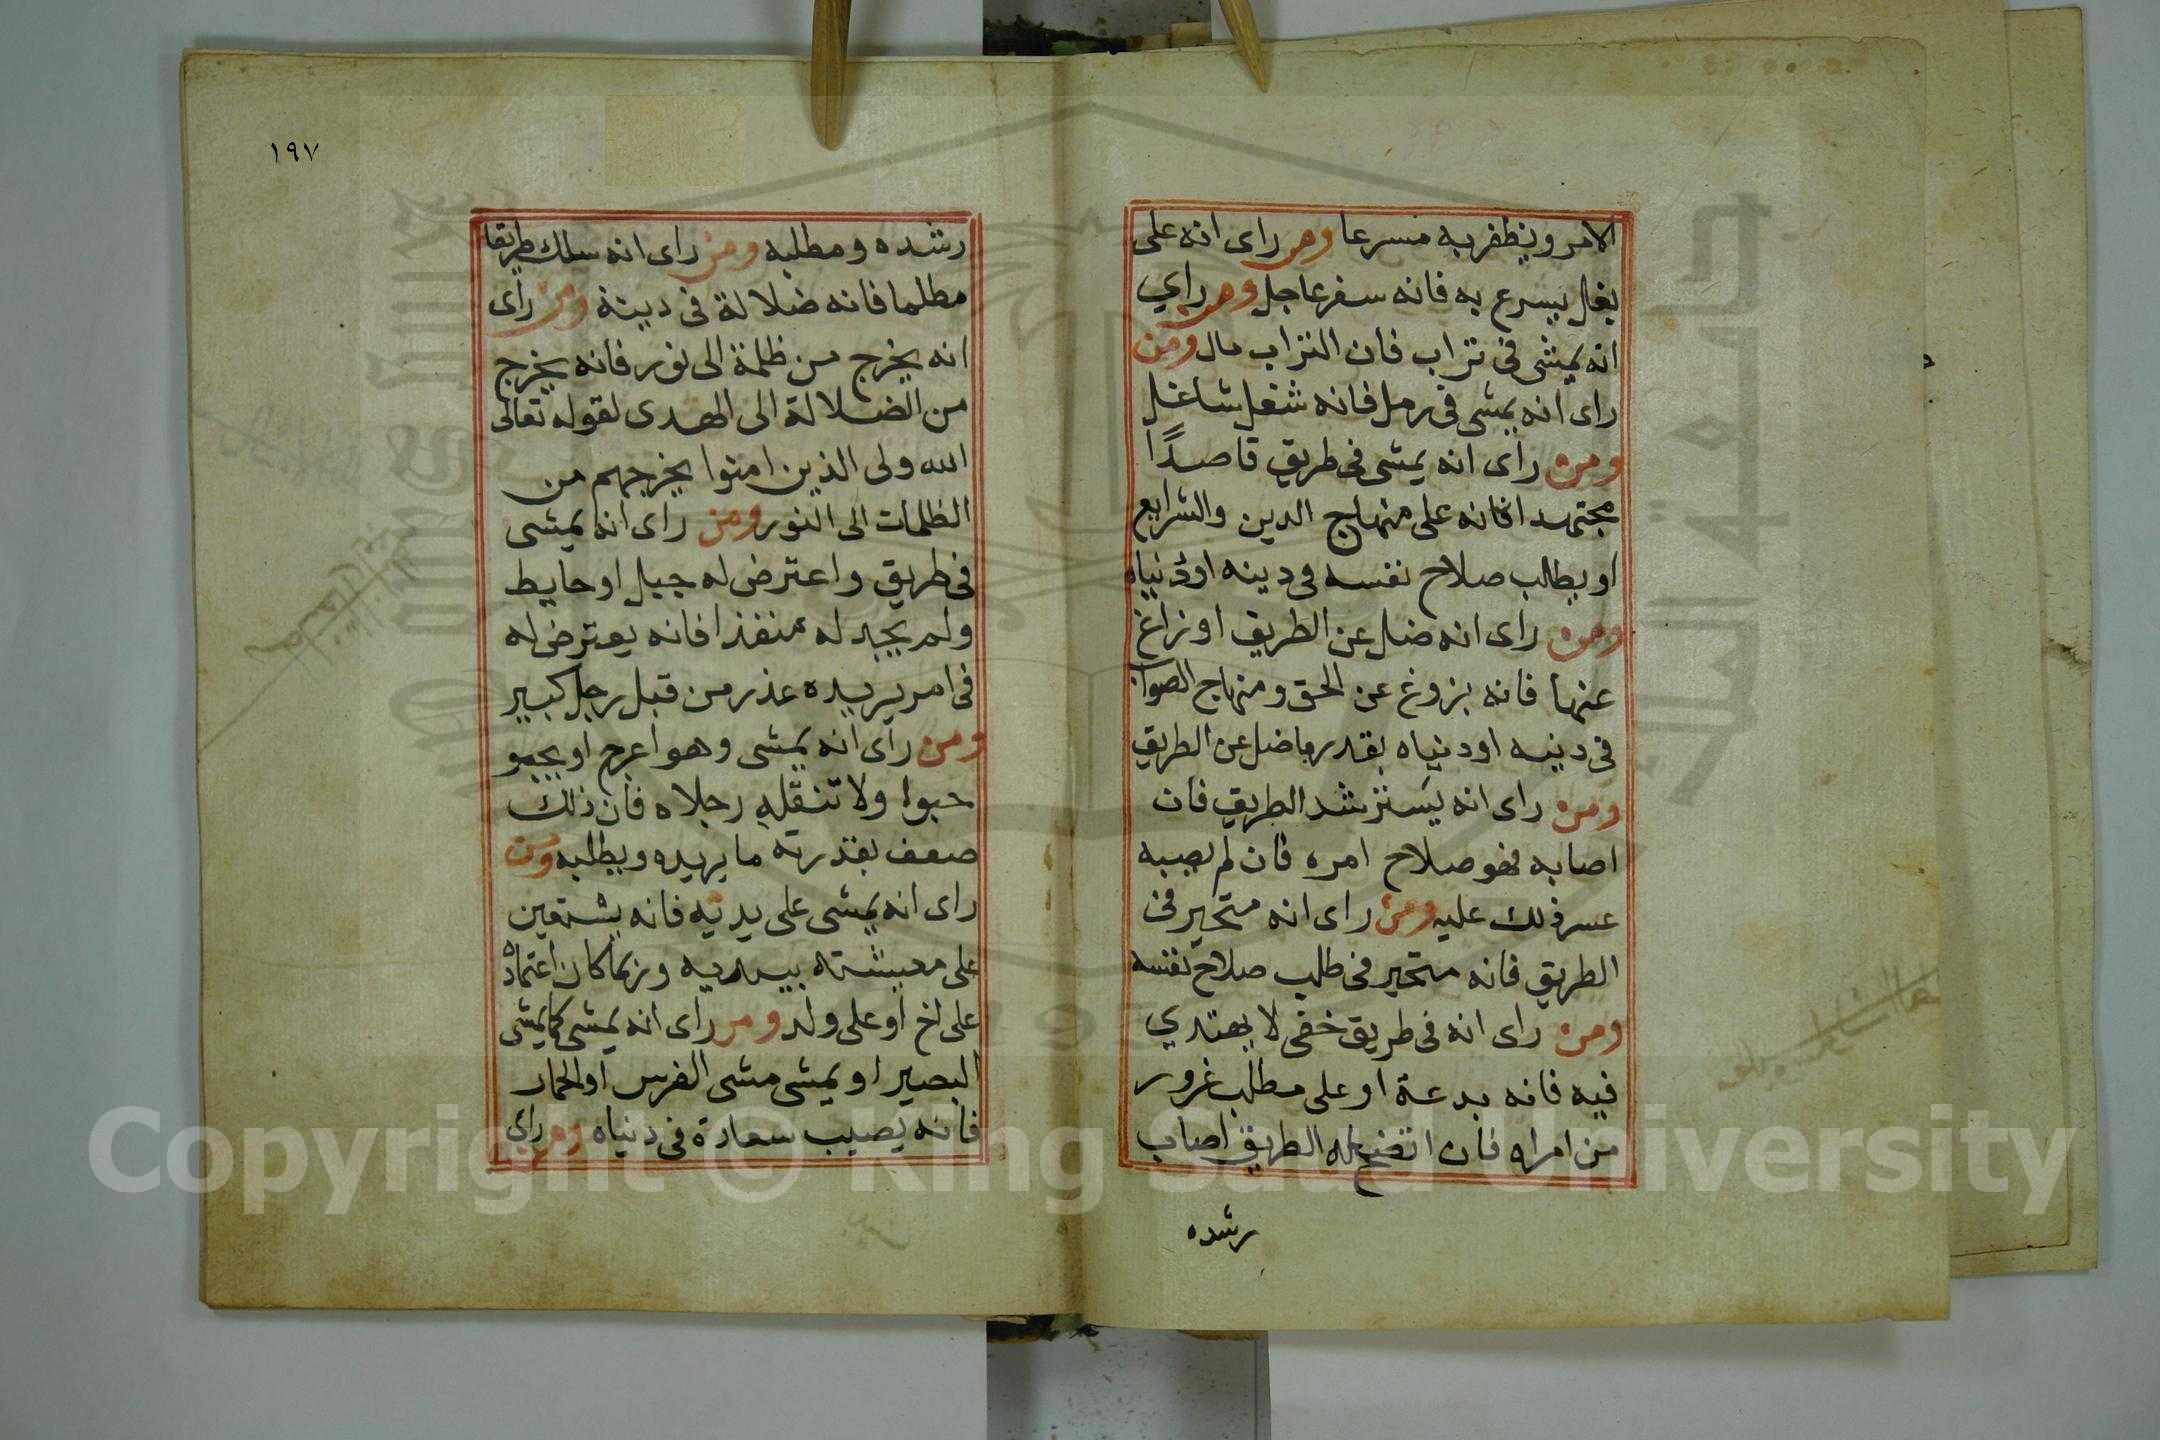 الامر ويظفر به مسرعا ومن راى انه على
بغل يسرع به فانه سفر عاجل ومن راي
انه يمشى فى تراب فان التراب مال ومن
راى انه يمشى فى رمل فانه شغل شاغل
ومن راى انه يمشى فى طريق قاصدًا
مجتهدا فانه على منهاج الدين والشرايع
او يطلب صلاح نفسه فى دينه او دنياه
ومن راى انه ضل عن الطريق او زاغ
عنها فانه يزوغ عن الحق ومنهاج الصواب
فى دينه او دنياه بقدر ماضل عن الطريق
ومن راى انه يسترشد الطريق فان
اصابه فهو صلاح امره فان لم يصبه
عسر ذلك عليه ومن راى انه متحير فى
الطريق فانه متحير فى طلب صلاح نفسه
ومن راى انه فى طريق خفى لا يهتدي
فيه فانه بدعة او على مطلب غرور
من امراه فان اتضح له الطريق اصاب
رشده
١٩٧
رشده ومطلبه ومن راى انه سلك طريقا
مظلما فانه ضلالة فى دينه ومن راى
انه يخرج من ظلمة الى نور فانه يخرج
من الضلالة الى الهدى لقوله تعالى
الله ولى الذين امنوا يخرجهم من
الظلمات الى النور ومن راى انه يمشى
فى طريق واعترض له جبل او حايط
ولم يجد له منفذا فانه يعترض له
فى امر يريده عذر من قبل رجل كبير
ومن راى انه يمشى وهو اعرج او يحبو
حبوا ولا تنقله رجلاه فان ذلك
ضعف بقدرته ما يريده ويطلبه ومن
راى انه يمشى على يديه فانه يستعين
على معيشته بيديه وربما كان اعتماده
على اخ او على ولد ومن راى انه يمشى كما يمشى
البصير او يمشى مشى الفرس او الحمار
فانه يصيب سعادة فى دنياه ومن راى
Copyright © King Saud University